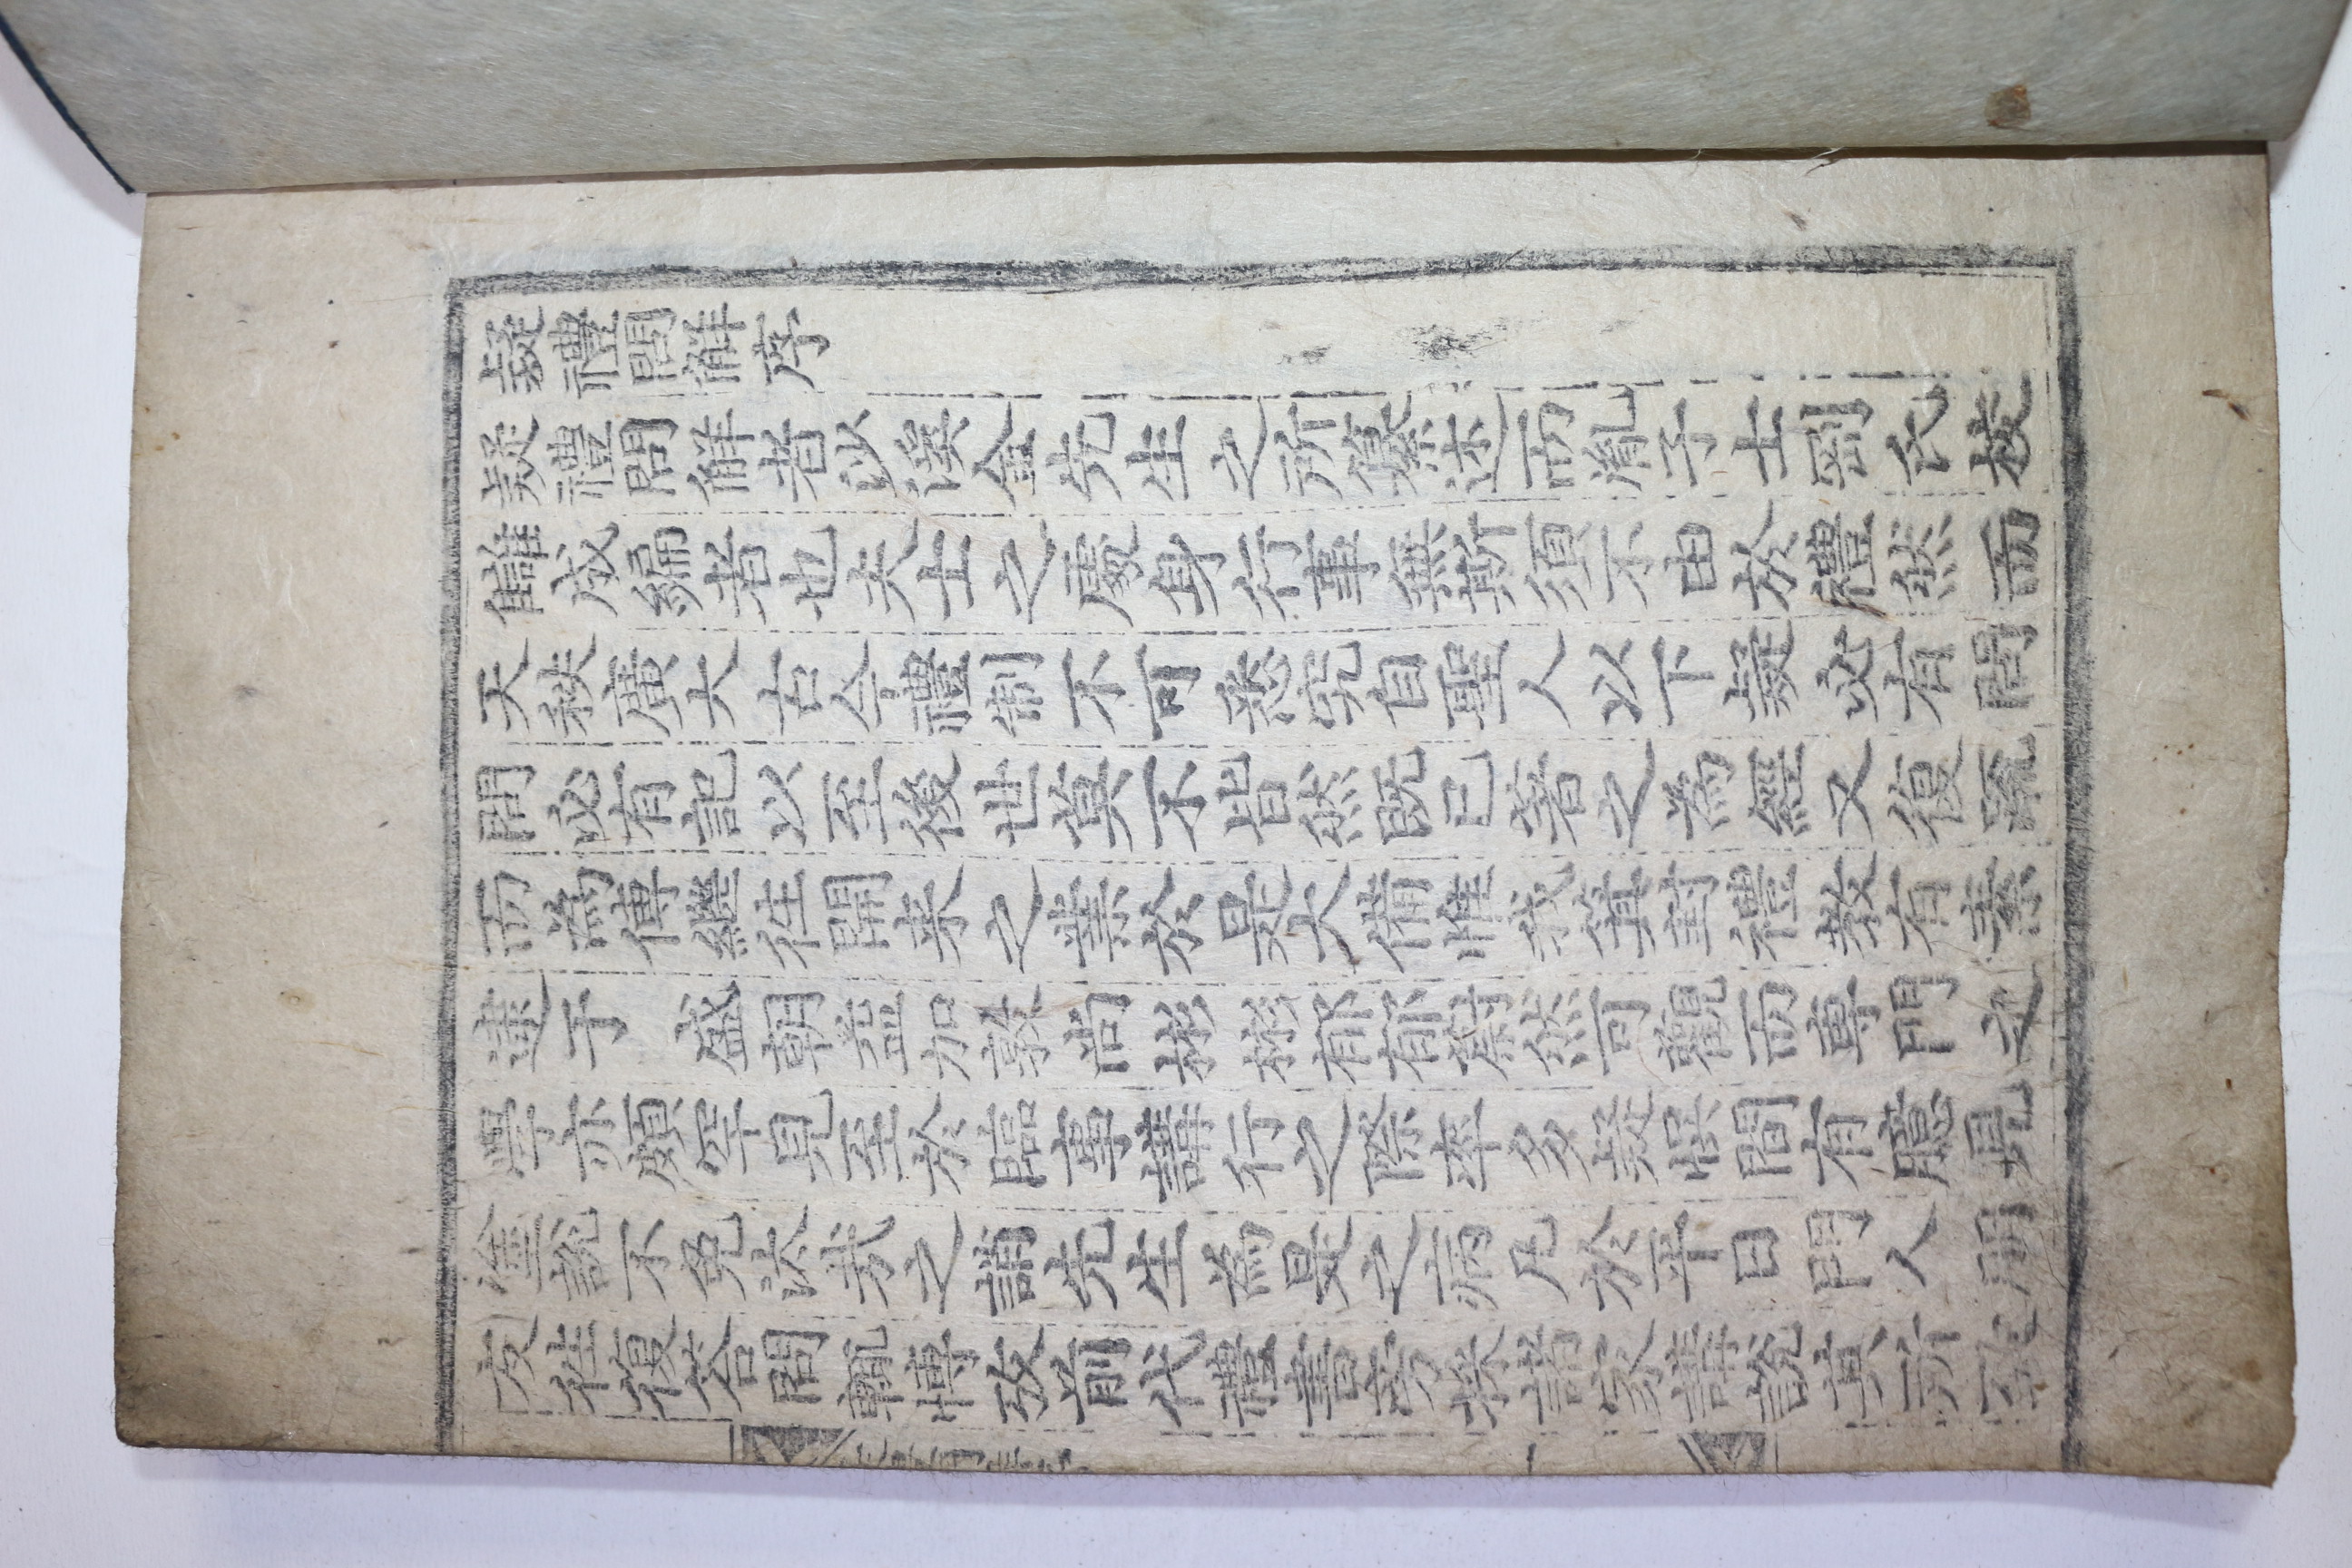 疑禮問解序
疑禮問解者沙溪金先生之所纂述而胤子士剛氏校
讎成編者也夫士之處身行事無斯須不由於禮然而
天秩廣大古今禮制不可悉究自聖人以下疑必有問
問必有記以至後世莫不皆然旣已著之為經又復疏
而為傳繼往開来之業於是大備惟我箕封禮教有素
逮于 盛朝益加敦尚彬彬郁郁蔚然可觀而專門之
學亦頗罕見至於臨事講行之際率多疑悞間有臆見
塗說不免汰哉之誚先生為是之病凡於平日門人朋
友往復答問輒博攷前代禮書旁採諸家講說其所